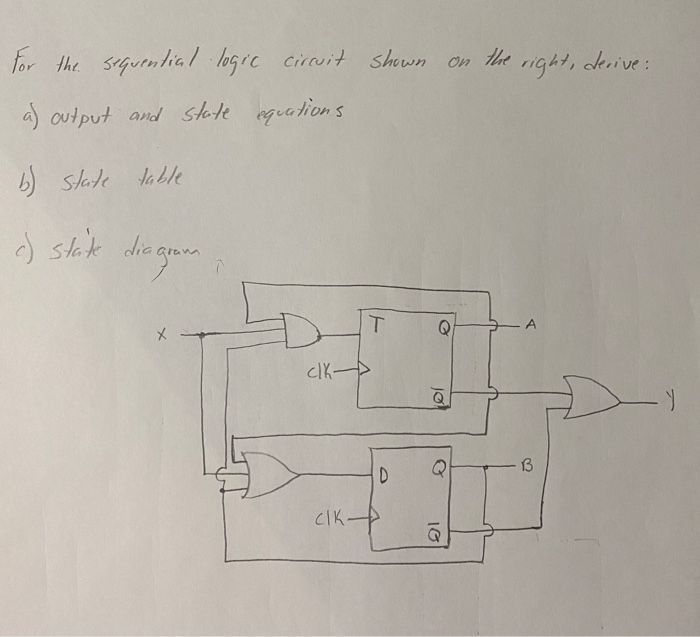 For the sequential logic circuit shown on the right, derive:
a) output and state equations
b) state table
c) state diagram
X
T
Q
A
clk
Q̅
y
D
Q
B
clk
Q̅